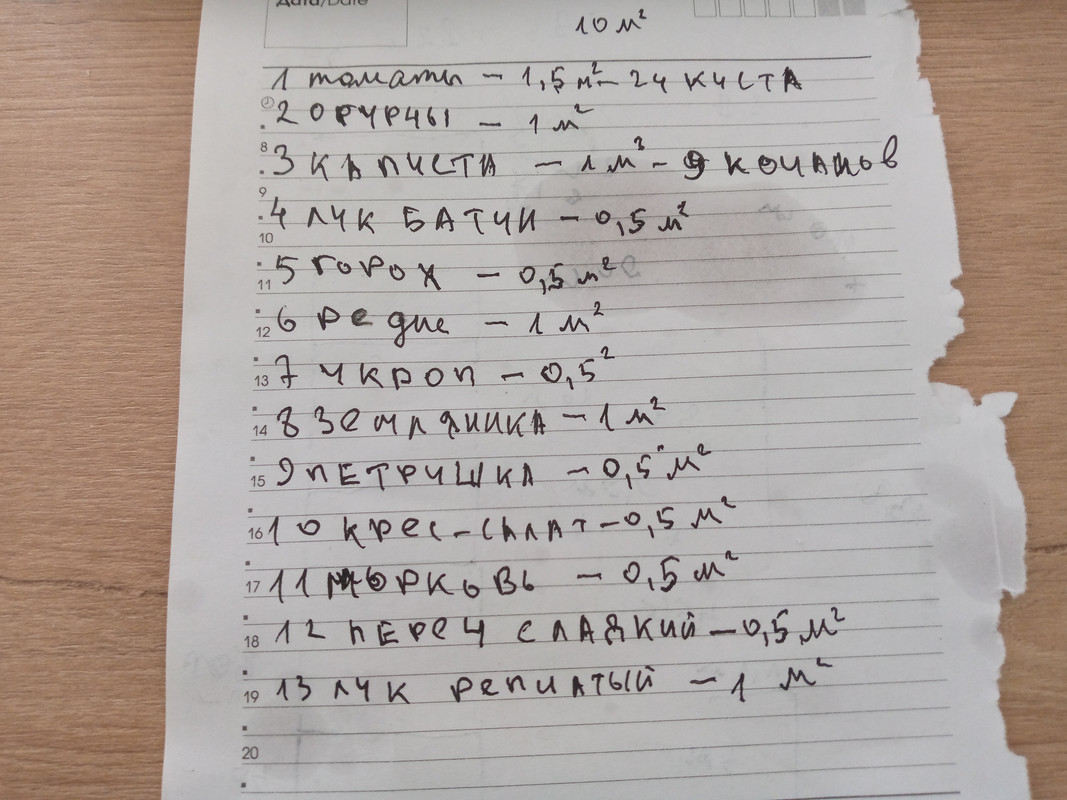 Дата/Date
10 м²
1 томаты – 1,5 м² – 24 куста
2 огурцы – 1 м²
8
3 КАПУСТА – 1 м² – 9 кочанов
9
4 ЛУК БАТУН – 0,5 м²
10
5 горох – 0,5 м²
11
6 редис – 1 м²
12
7 укроп – 0,5²
13
8 земляника – 1 м²
14
9 ПЕТРУШКА – 0,5 м²
15
10 крес-салат – 0,5 м²
16
11 морковь – 0,5 м²
17
12 перец сладкий – 0,5 м²
18
13 лук репчатый – 1 м²
19
20